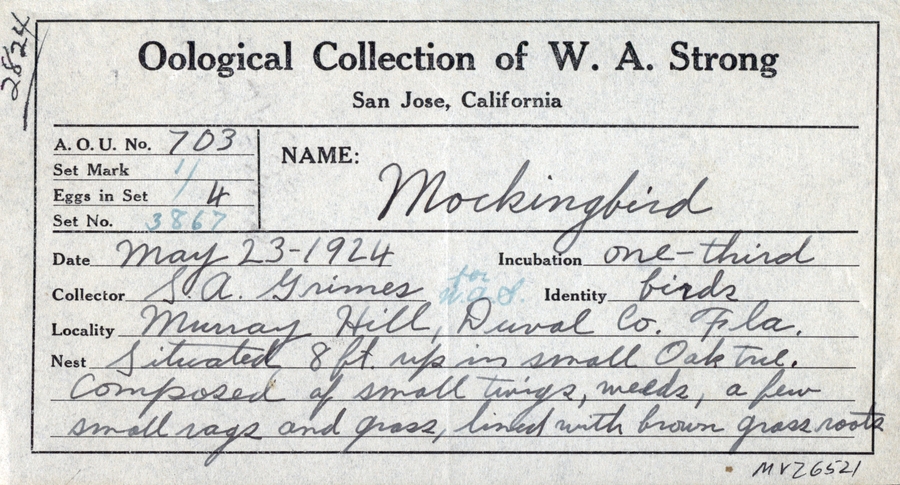 2824
Oological Collection of W. A. Strong
San Jose, California
A. O. U. No. 703
Set Mark 1/
Eggs in Set 4
Set No. 3867
NAME:
Mockingbird
Date May 23-1924 Incubation one-third
Collector S. A. Grimes for W.A.S. Identity birds
Locality Murray Hill, Duval Co. Fla.
Nest Situated 8 ft. up in small Oak tree.
Composed of small twigs, weeds, a few
small rags and grass, lined with brown grass roots
MVZ6521